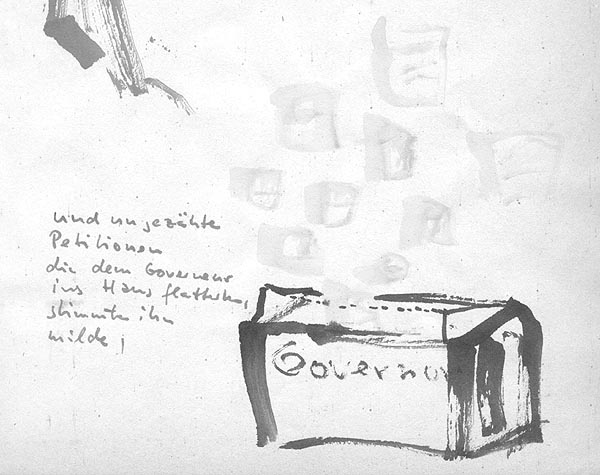 und ungezählte
Petitionen
die dem Governeur
ins Haus flatterten,
stimmten ihn
milde ;
Governour